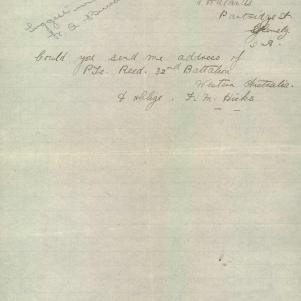 Partridge St
Glenelg
S. A.
Could you send me address of
Pte. Reed. 32nd Battalion
Western Australia.
& oblige. F. M. Hicks